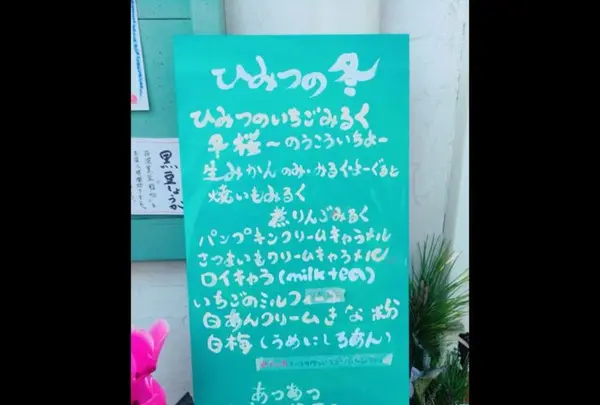 ひみつの冬
ひみつのいちごみるく
早桜〜のうこういちよー
生みかんのみ・みるくよーぐると
焼いもみるく
蒸りんごみるく
パンプキンクリームキャラメル
さつまいもクリームキャラメル
ロイキャラ(milk tea)
いちごのミルフ
白あんクリームきな粉
白梅(うめにしろあん)
あつあつ
黒豆